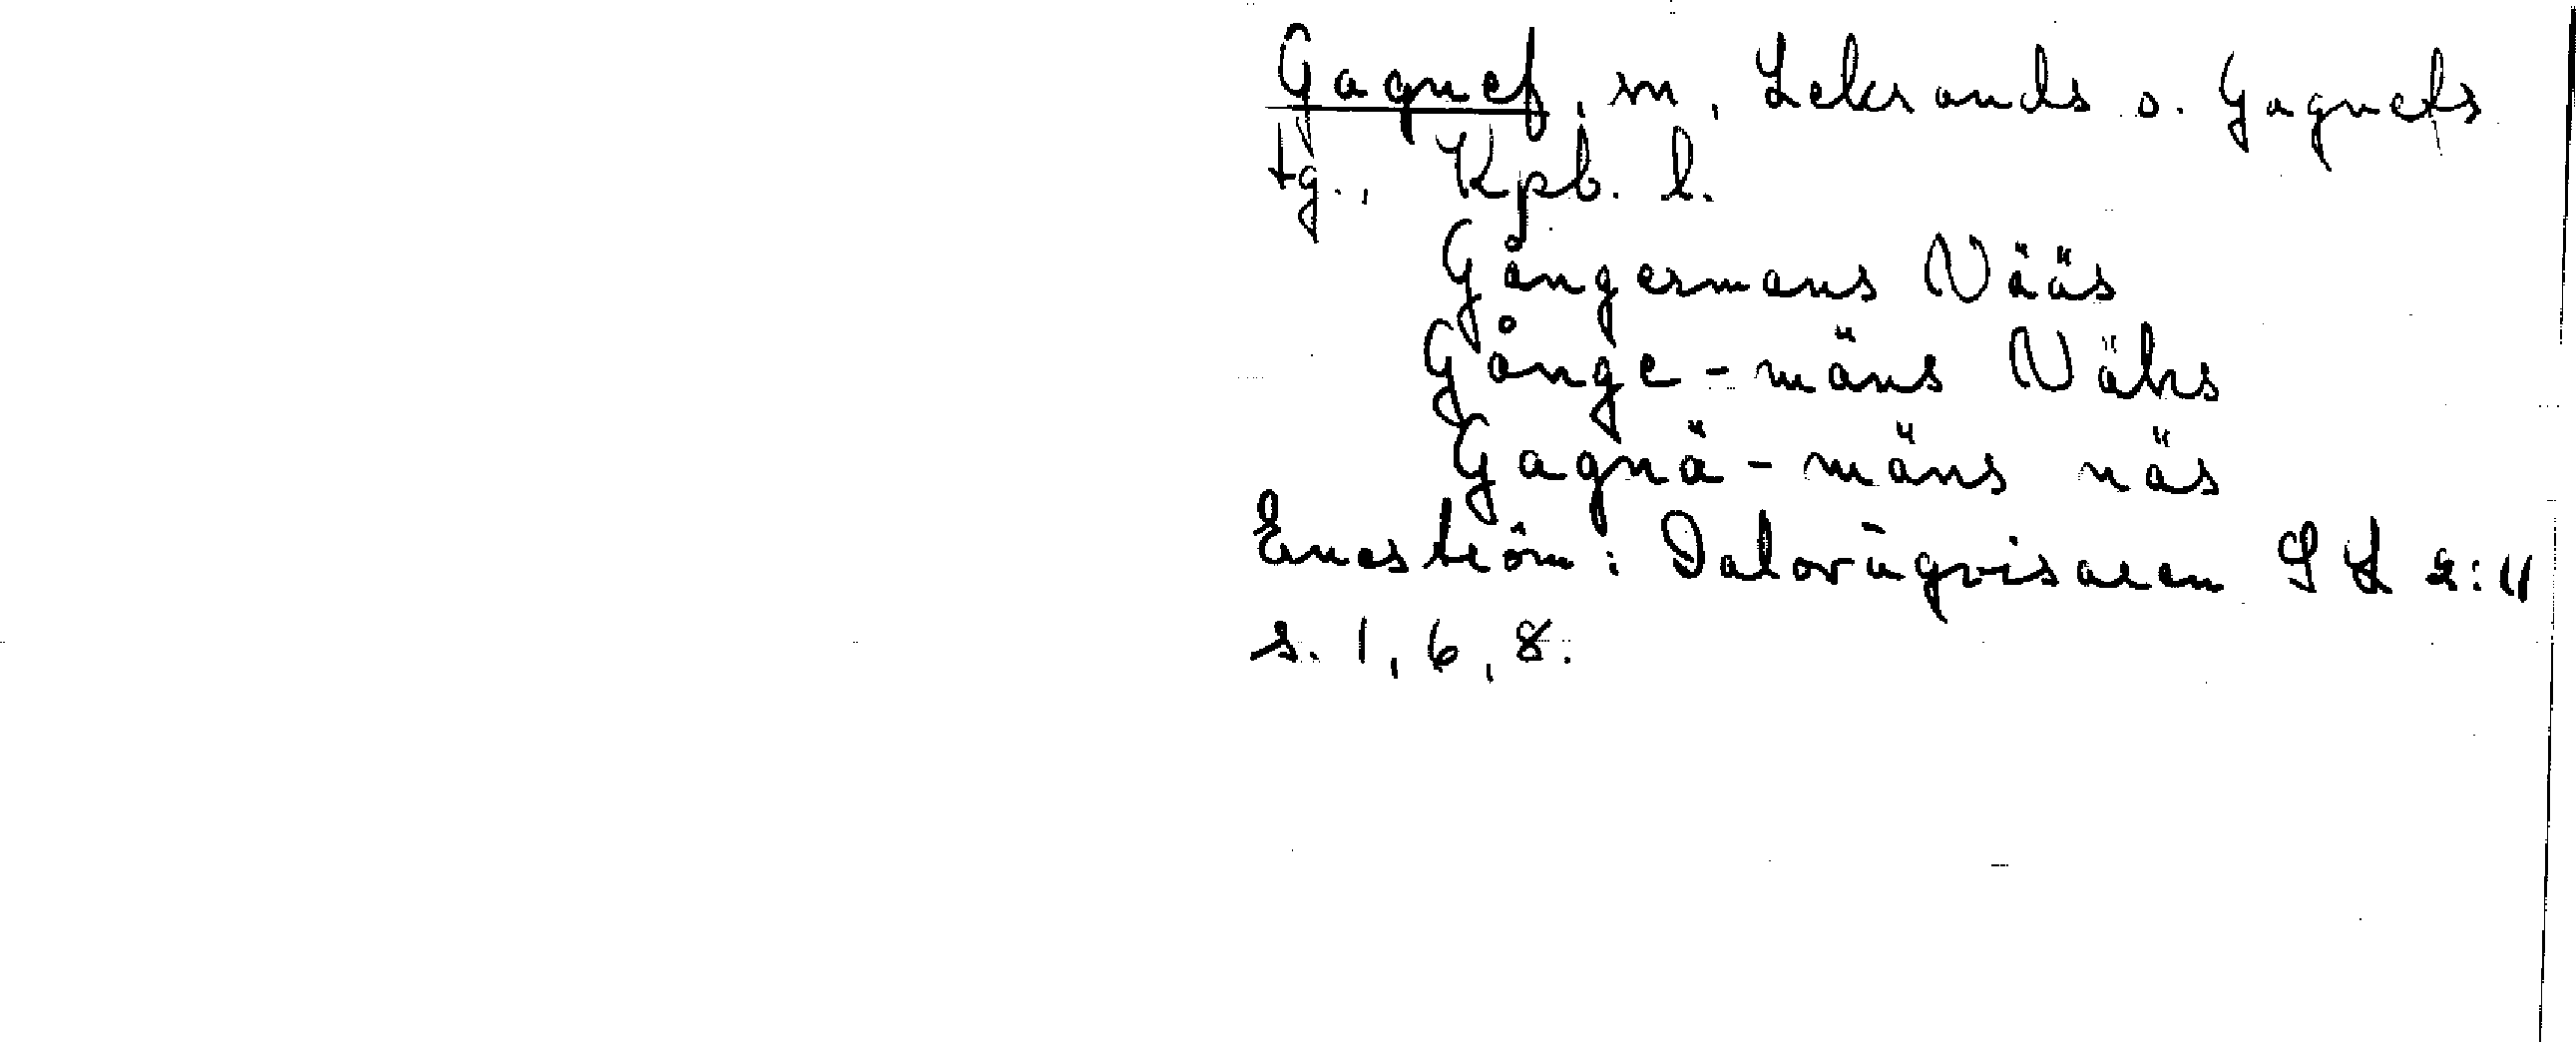 Gagnef, sn, Leksands o. Gagnefs
tg., Kpb. l.
Gångermans Nääs
Gånge-mäns Nähs
Gagnä-mäns näs
Eneström: Dalovägvisaren SL 2:11
s. 1, 6, 8.